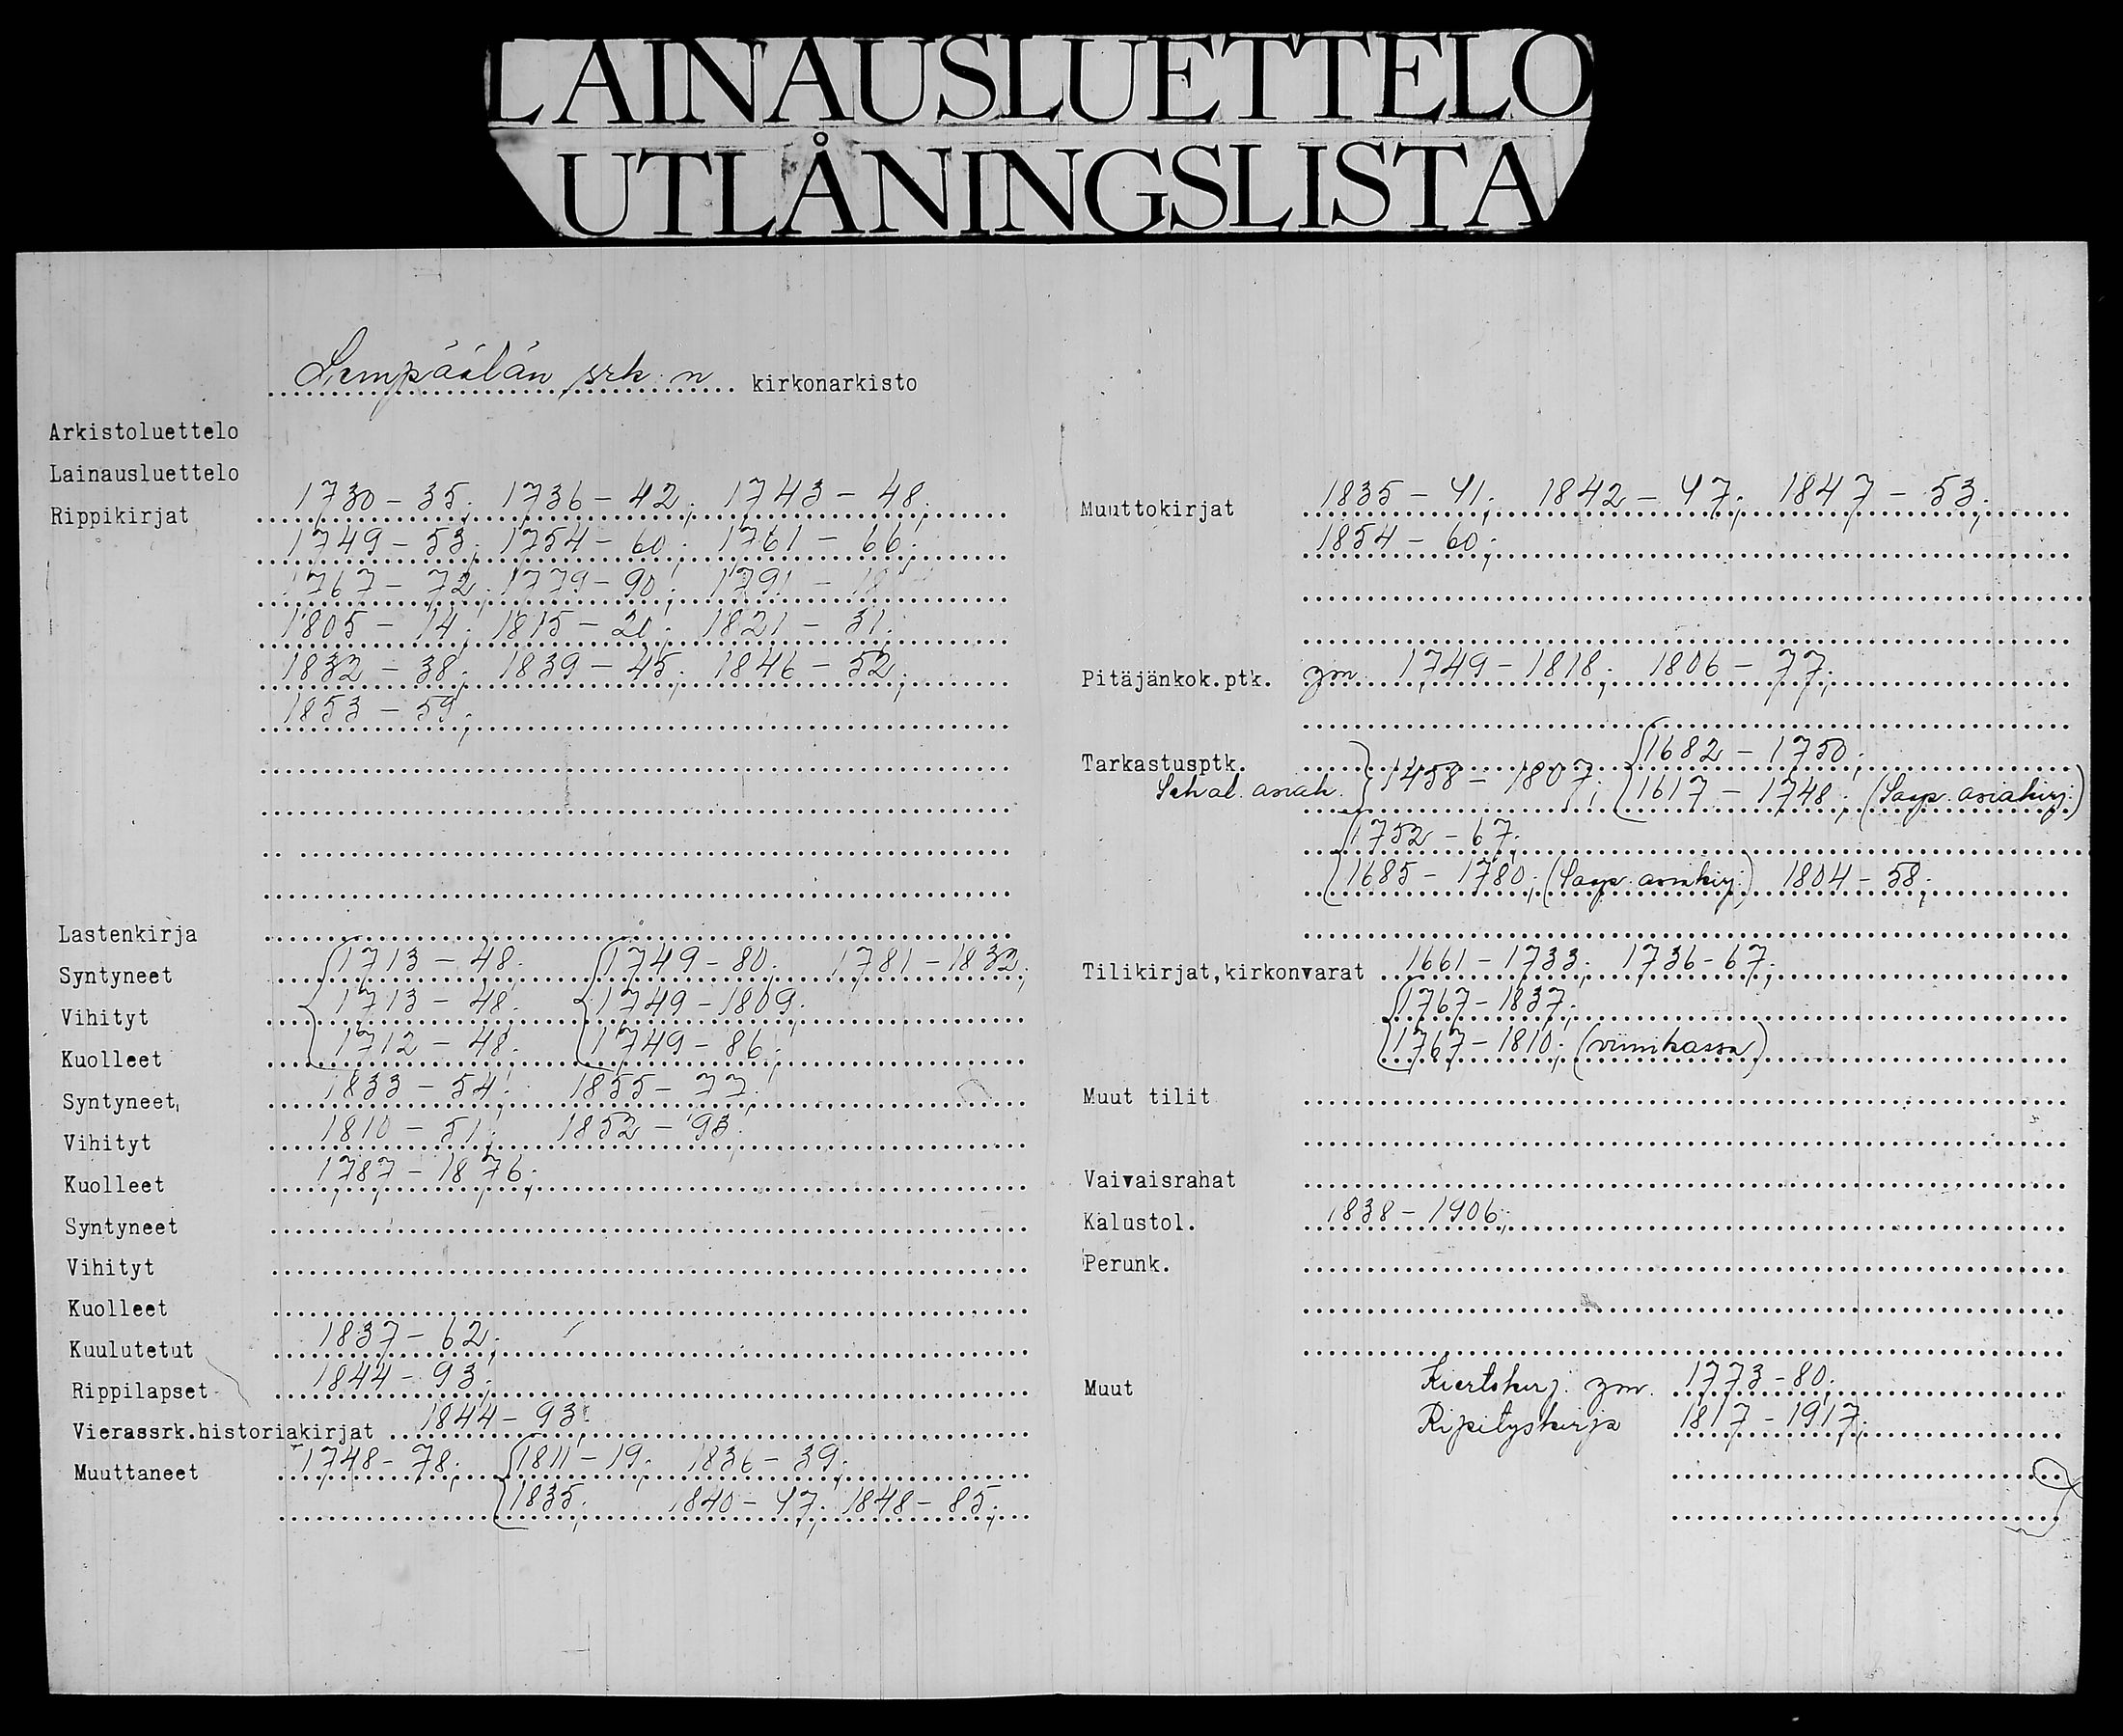 LAINAUSLUETTELO
UTLÅNINGSLISTA
Lempäälän srk:n kirkonarkisto
Arkistoluettelo
Lainausluettelo
Rippikirjat 1730-35; 1736-42; 1743-48;
1749-53; 1754-60; 1761-66;
1767-72; 1779-90; 1791-
1805-14; 1815-20; 1821-31;
1832-38; 1839-45; 1846-52;
1853-59;
Lastenkirja
Syntyneet 1713-48; 1749-80; 1781-1832;
Vihityt 1713-48; 1749-1809;
Kuolleet 1712-48; 1749-86;
Syntyneet, 1833-54; 1855-77;
Vihityt 1810-51; 1852-93;
Kuolleet 1787-1876;
Syntyneet
Vihityt
Kuolleet
Kuulutetut 1837-62;
Rippilapset 1844-93;
Vierassrk.historiakirjat 1844-93;
Muuttaneet 1748-78; 1811-19; 1836-39;
1835; 1840-47; 1848-85;
Muuttokirjat 1835-41; 1842-47; 1847-53;
1854-60;
Pitäjänkok.ptk. ym. 1749-1818; 1806-77;
Tarkastusptk. 1682-1750;
Sekal. asiak. 1458-1807; 1617-1748; (Saap. asiakirj.)
1752-67;
1685-1780; (Saap. asiakirj.) 1804-58;
Tilikirjat,kirkonvarat 1661-1733; 1736-67;
1767-1837;
1767-1810; (viinikassa)
Muut tilit
Vaivaisrahat
Kalustol. 1838-1906;
Perunk.
Muut Kiertokirj. ym. 1773-80;
Ripityskirja 1817-1917;